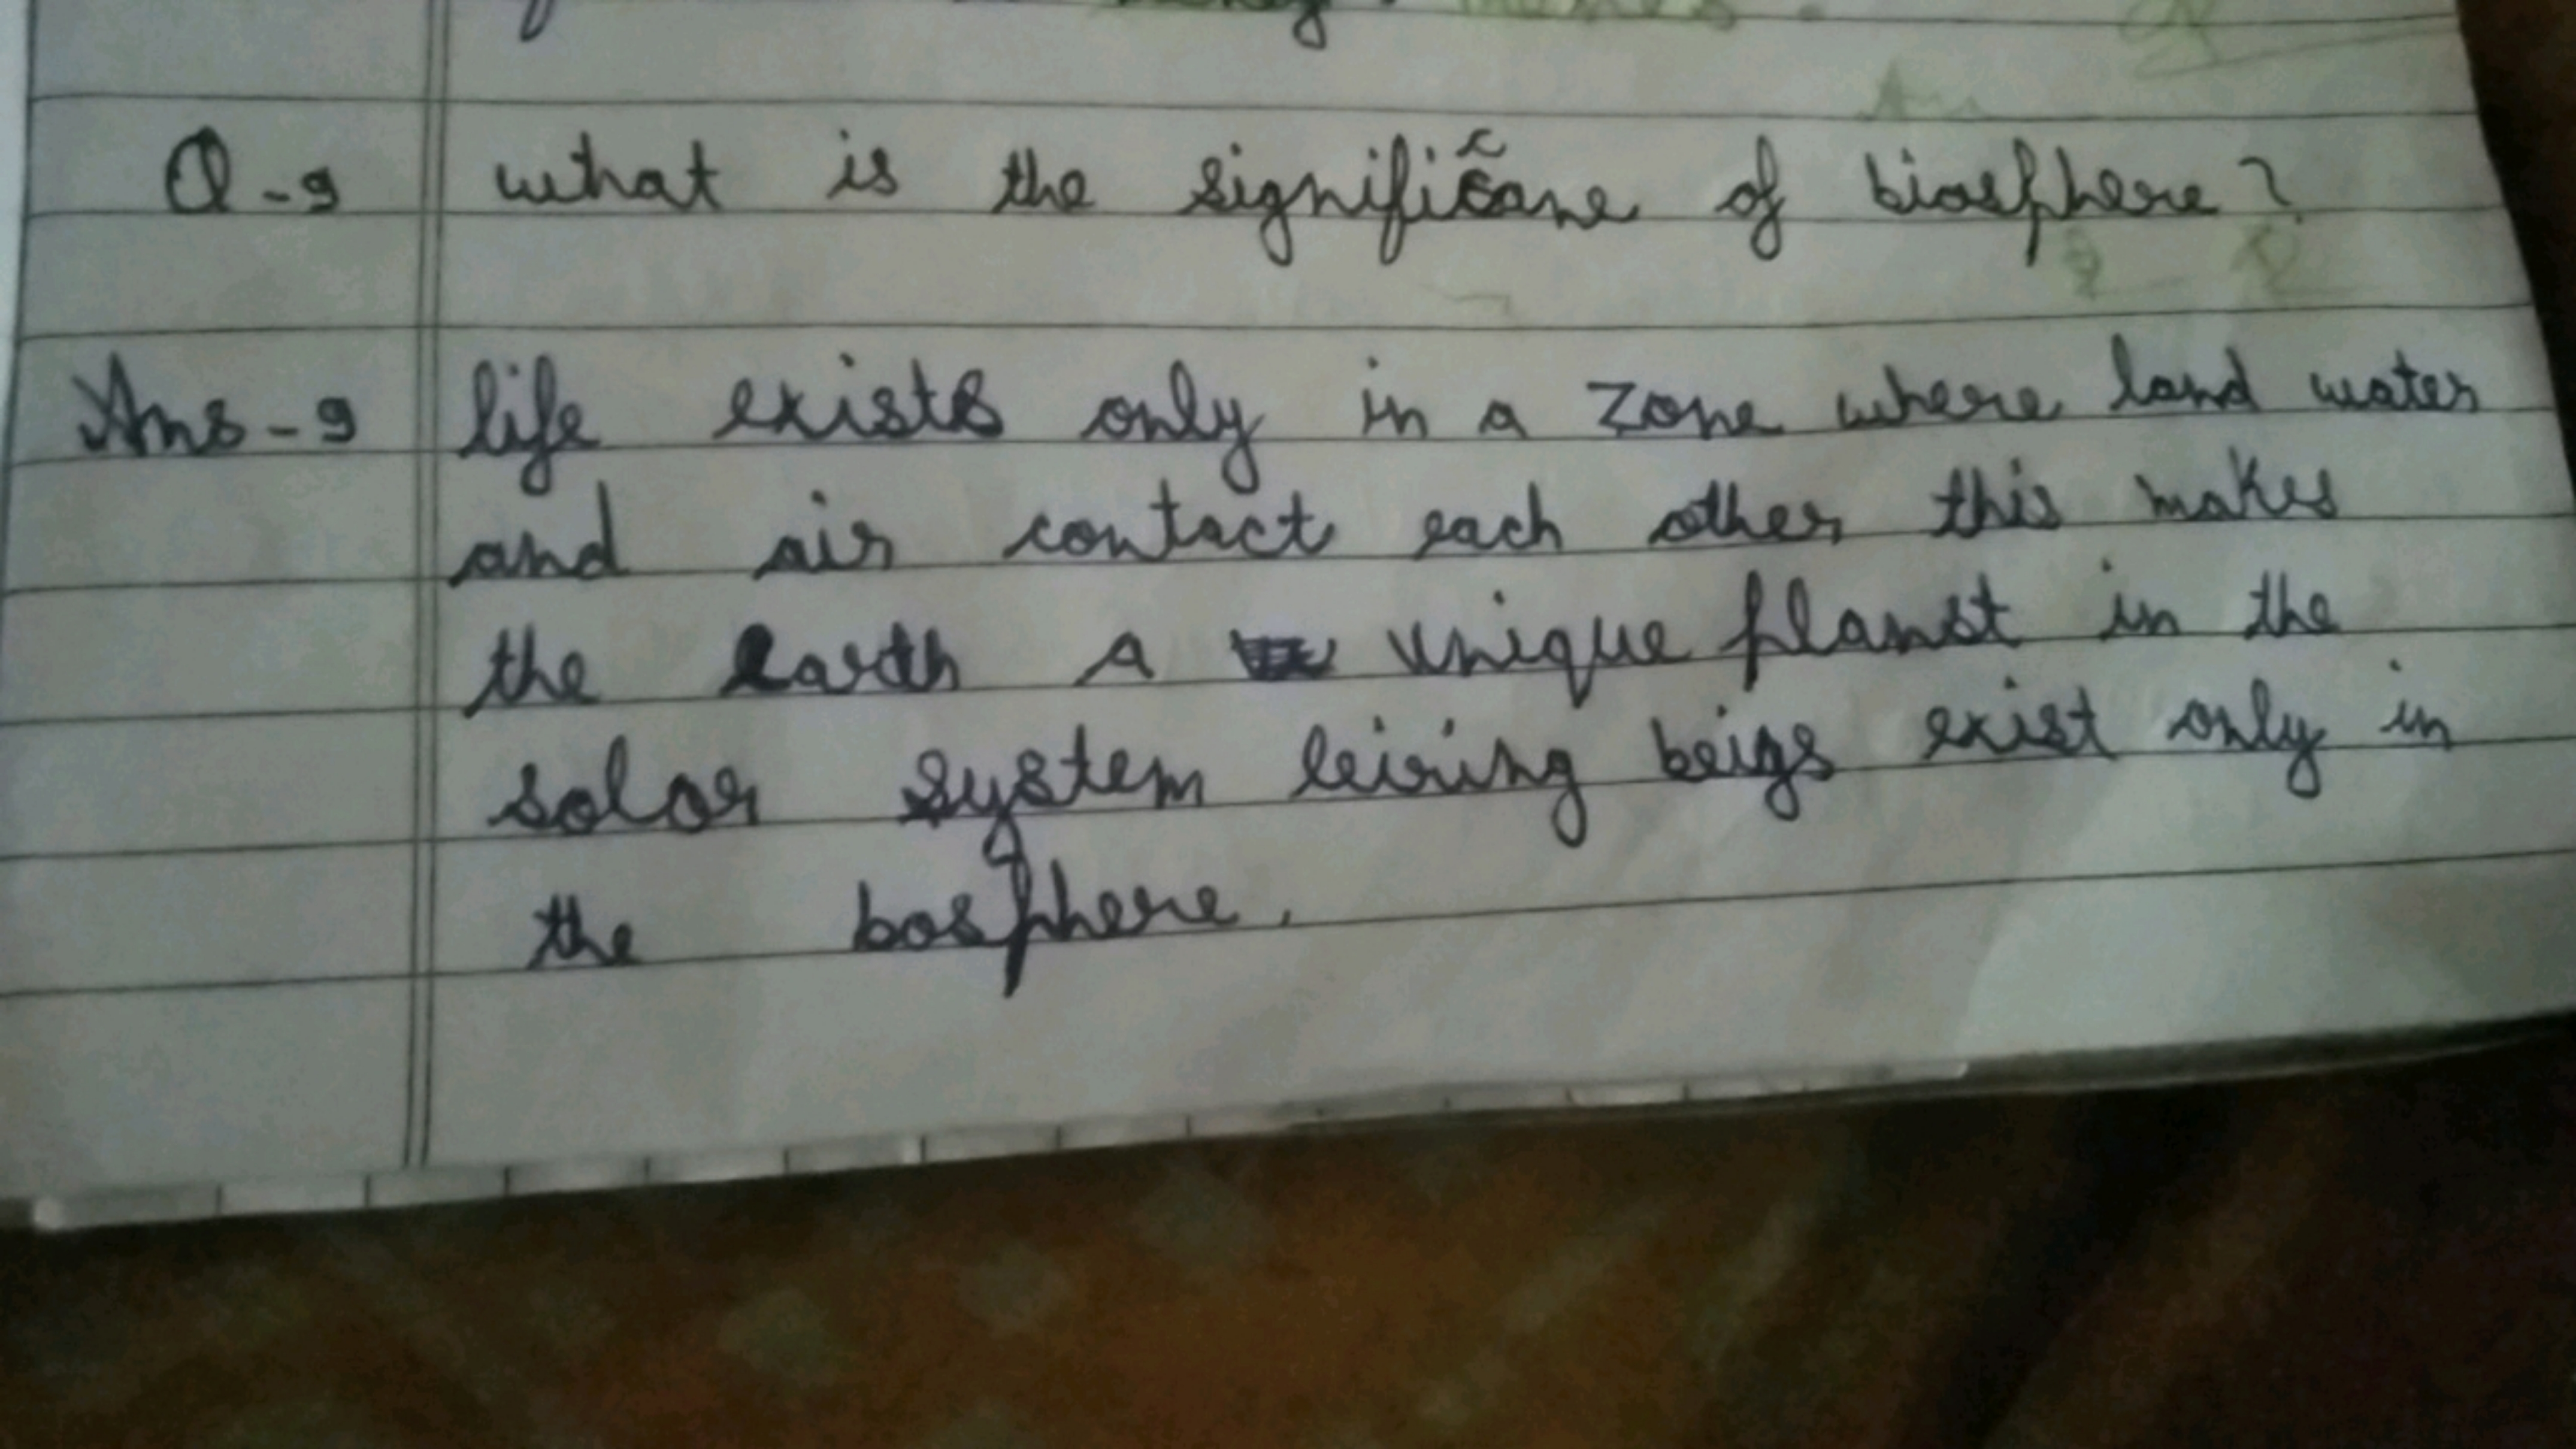 Q-9 what is the significane of biosphere?
Ans-9 life exists only in a zone where land water
and air contact each other this makes
the earth a unique planet in the
solar system leiving beigs exist only in
the bosphere.